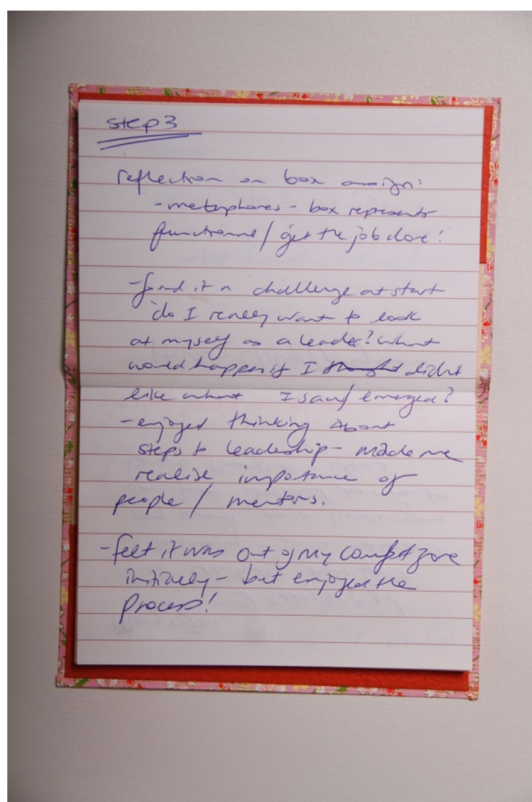 step 3
reflection on box assign:
- metaphores - box represents
functionne / get the job done!
- find it a challenge at start
'do I really want to look
at myself as a leader? What
would happen if I thought didnt
like what I saw / emerged?
- enjoyed thinking about
steps to leadership - made me
realise importance of
people / mentors.
- felt it was out of my comfort zone
initially - but enjoyed the
process!